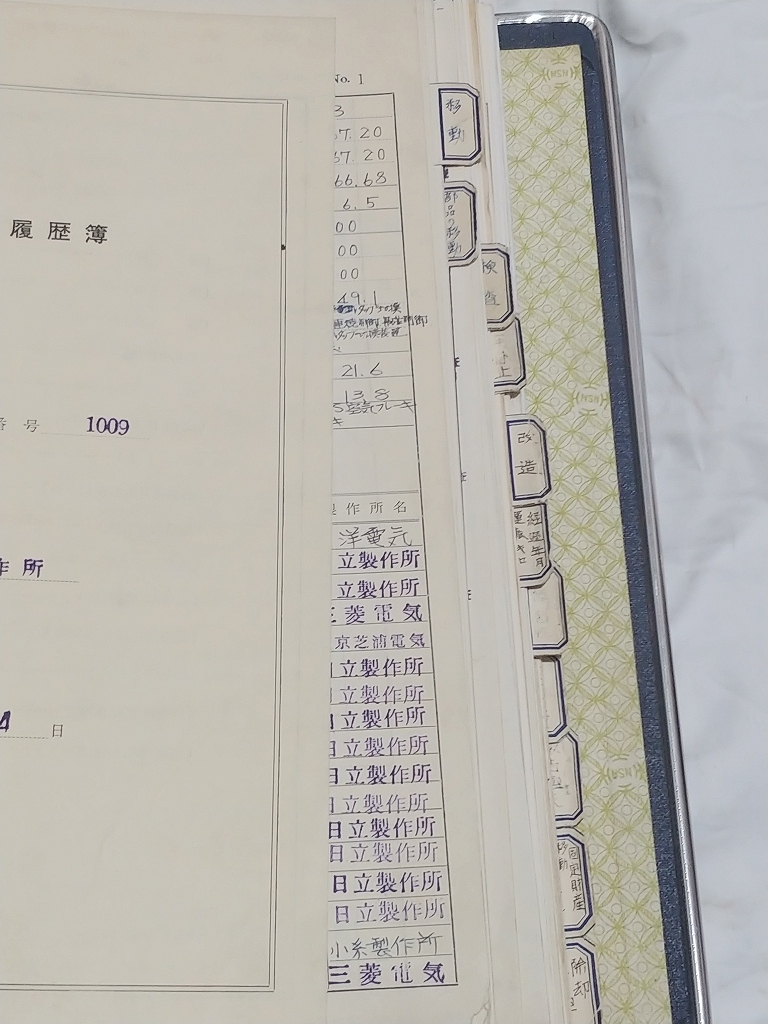 履歴簿
番号 1009
作所
4 日
No. 1
3
67.20
67.20
66.68
6.5
00
00
00
49.1
21.6
13.8
空気ブレーキ
製作所名
洋電気
立製作所
立製作所
三菱電気
京芝浦電気
日立製作所
日立製作所
日立製作所
日立製作所
日立製作所
日立製作所
日立製作所
日立製作所
日立製作所
日立製作所
小糸製作所
三菱電気
移動
部品の移動
検査
上
改造
経過年月
固定財産
移動
除却
(NSN)
(NSN)
(NSN)